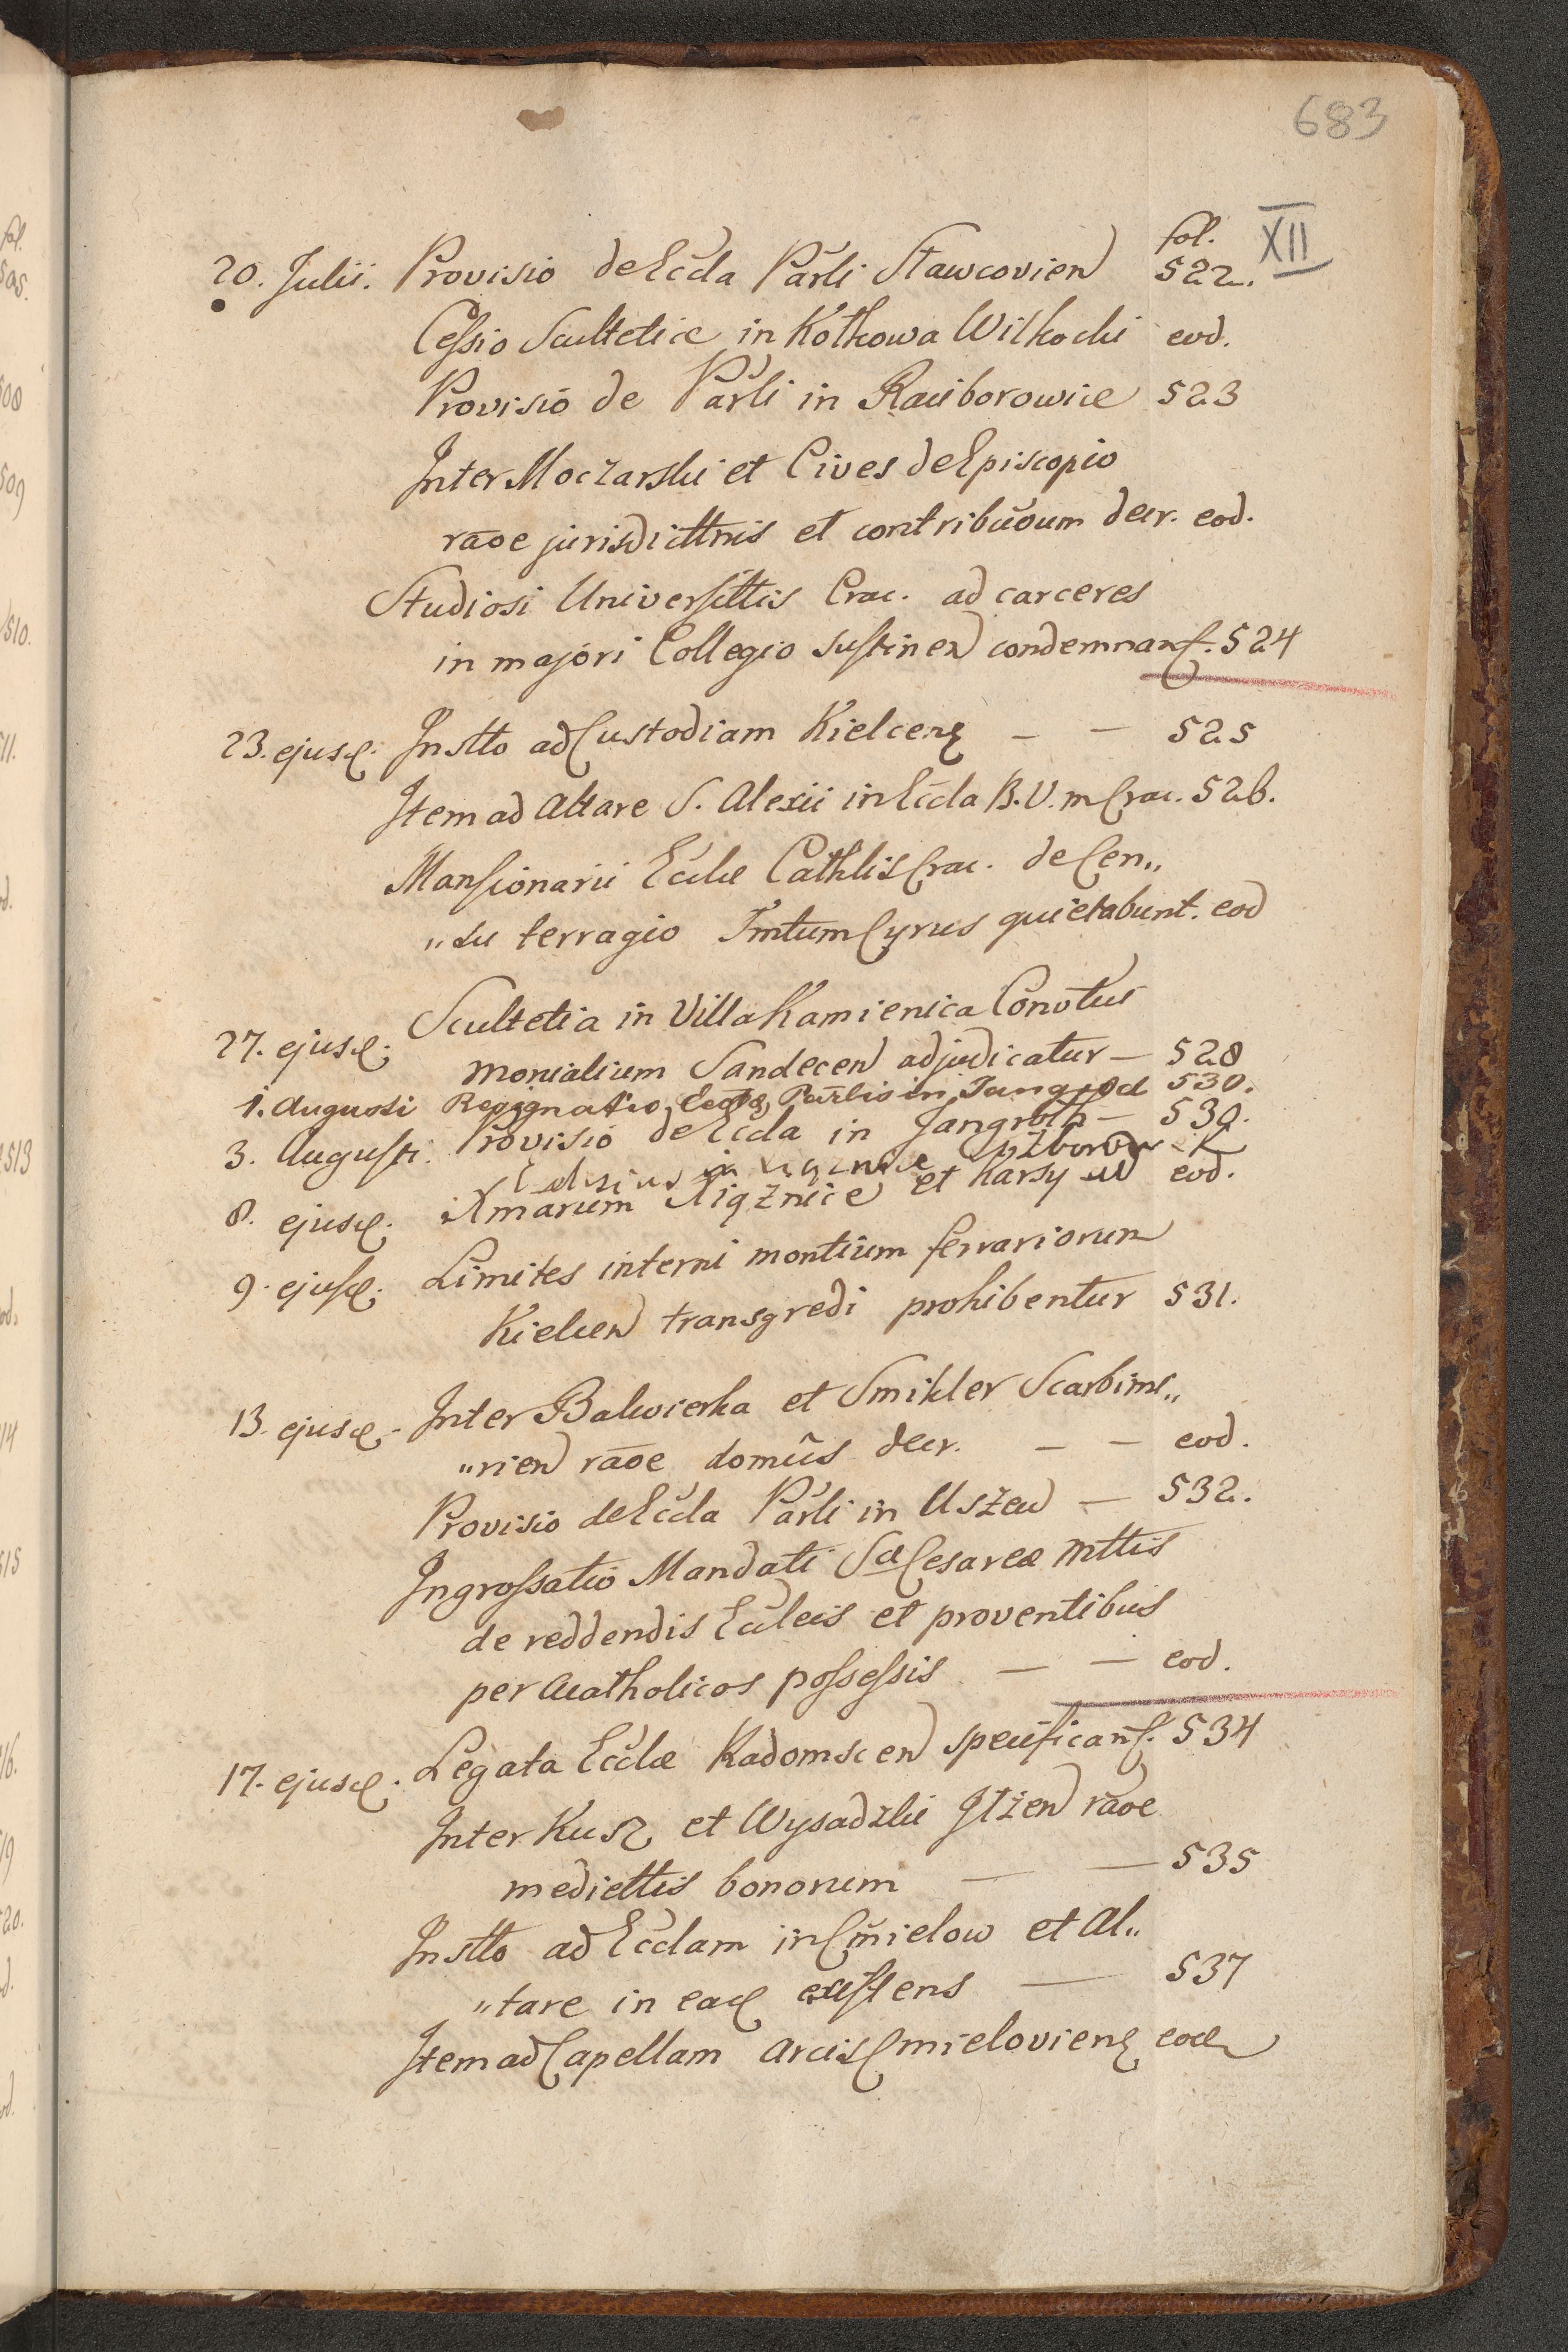 683
fol. XII
20. Julii. Provisio de Eccla Parli Stawcovien 522.
Cessio Scultetiæ in Kotkowa Wilkocki eod.
Provisio de Parli in Raciborowice 523
Inter Moczarski et Cives de Episcopio
raoe jurisdittnis et contribuoum decr. eod.
Studiosi Universittis Crac. ad carceres
in majori Collegio sustinen condemnant. 524
23. ejusd. Instto ad Custodiam Kielcens — — 525
Item ad Altare S. Alexii in Eccla B.V.M Crac. 526.
Mansionarii Ecclæ Cathlis Crac. de Cen„
„su terragio Cyrus quietabunt. eod
27. ejusd. Scultetia in Villa Kamienica Convtui
Monialium Sandecen adjudicatur — 528
1. Augusti Parlis in 530.
3. Augusti. Provisio de Eccla in Jangroth — 530.
in
8. ejusd. Xmarum Xiąznice et Karsy eod.
9. ejusd. Limites interni montium ferrariorum
Kielcen transgredi prohibentur 531.
13. ejusd. Inter Balwierka et Smikler Scarbimi„
„rien raoe domus decr. — — eod.
Provisio de Eccla Parli in Uszew — 532.
Ingrossatio Mandati Sæ Cesareæ Mttis
de reddendis Eccleis et proventibus
per Acatholicos possessis — — eod.
17. ejusd. Legata Ecclæ Radomscen specificant. 534
Inter Kusz et Wysadzki Ilzen raoe
mediettis bonorum — — 535
Instto ad Ecclam in Cmielow et Al„
„tare in ead existens — 537
Item ad Capellam Arcis Cmieloviens eod